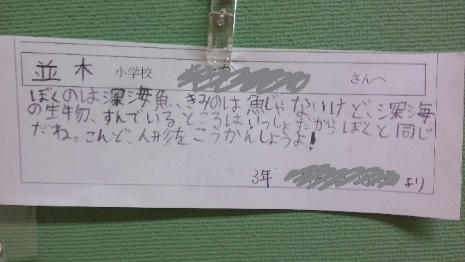 並木 小学校 さんへ
ぼくのは深海魚、きみのは魚じゃないけど、深海
の生物、すんでいるところはいっしょだからぼくと同じ
だね。こんど、人形をこうかんしようよ!
3年 より